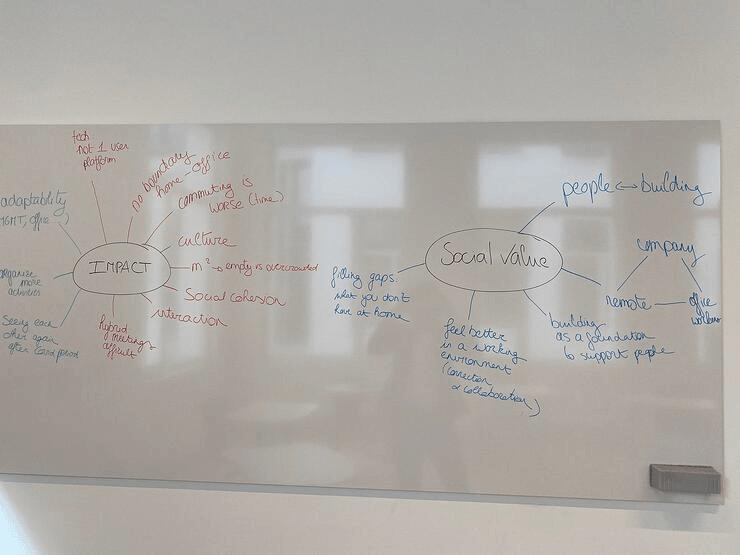 tech:
not 1 user
platform
no boundary
home - office
commuting is
worse (time)
culture
m² → empty vs overcrowded
Social cohesion
interaction
hybrid
meetings
difficult
adaptability
MGMT, office
organize
more
activities
Seeing each
other again
after covid period
IMPACT
Social Value
people ↔ building
company
remote
office
workers
building
as a foundation
to support people
feel better
in a working
environment
(connection
& collaboration)
filling gaps:
what you don't
have at home